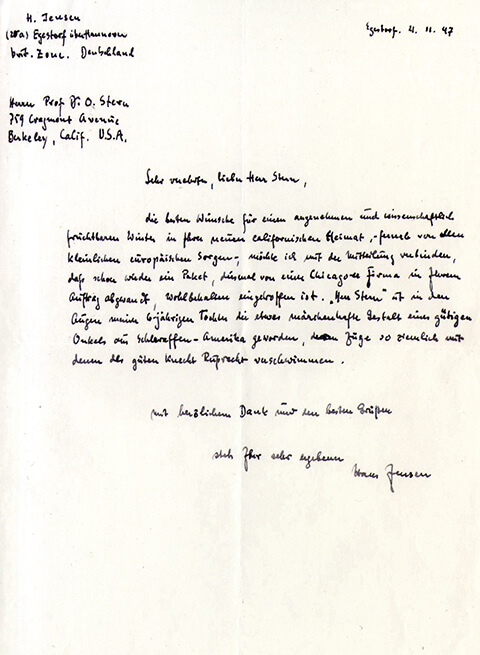 H. Jensen
(20a) Egestorf über Hannover
brit. Zone. Deutschland
Egestorf. 4. 11. 47
Herrn Prof Dr. O. Stern
759 Cragmont Avenue
Berkeley, Calif. U.S.A.
Sehr verehrter, lieber Herr Stern,
die besten Wünsche für einen angenehmen und wissenschaftlich
fruchtbaren Winter in Ihrer neuen californischen Heimat, - fernab von allen
kleinlichen europäischen Sorgen -, möchte ich mit der Mitteilung verbinden,
daß schon wieder ein Paket, diesmal von einer Chicagoer Firma in Ihrem
Auftrag abgesandt, wohlbehalten eingetroffen ist. „Herr Stern" ist in den
Augen meiner 6-jährigen Tochter die etwas märchenhafte Gestalt eines gütigen
Onkels aus Schlaraffen-Amerika geworden, deren Züge so ziemlich mit
denen des guten Knecht Ruprecht verschwimmen.
mit herzlichem Dank und den besten Grüßen
stets Ihr sehr ergebener
Hans Jensen